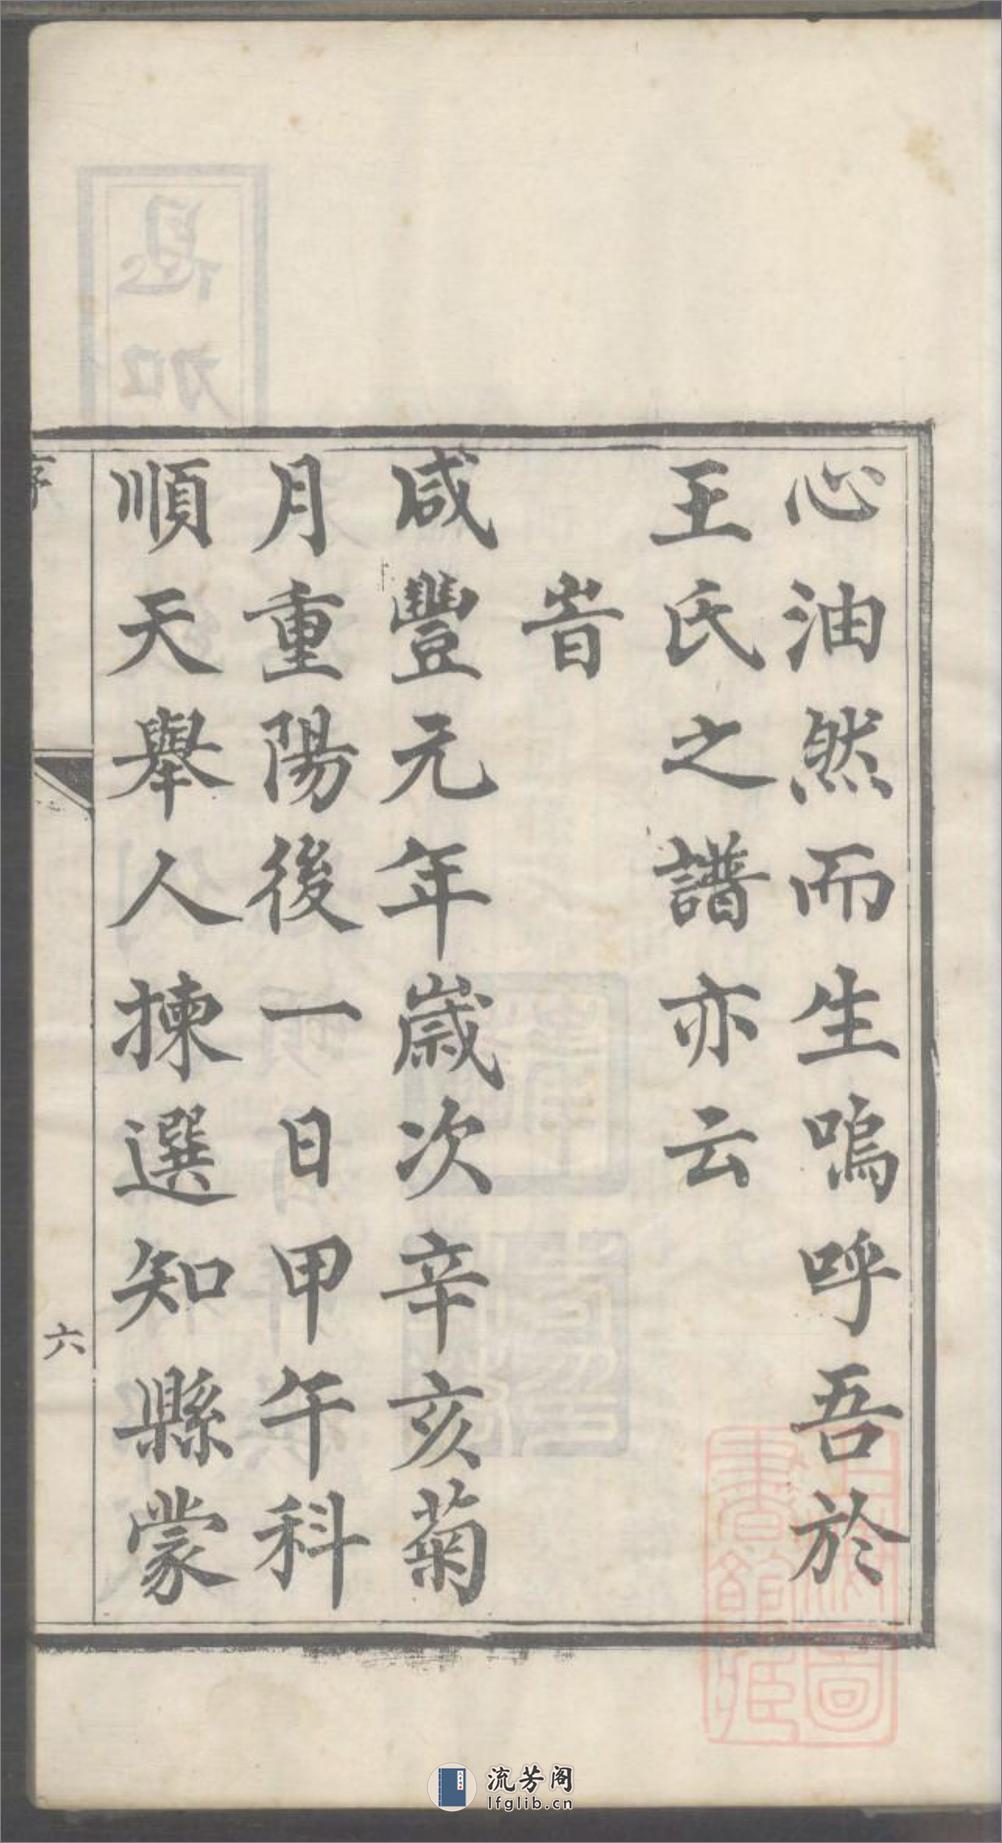 心油然而生嗚呼吾於
王氏之譜亦云
旹
咸豐元年歲次辛亥菊
月重陽後一日甲午科
順天舉人揀選知縣蒙
六
流芳阁
lfglib.cn